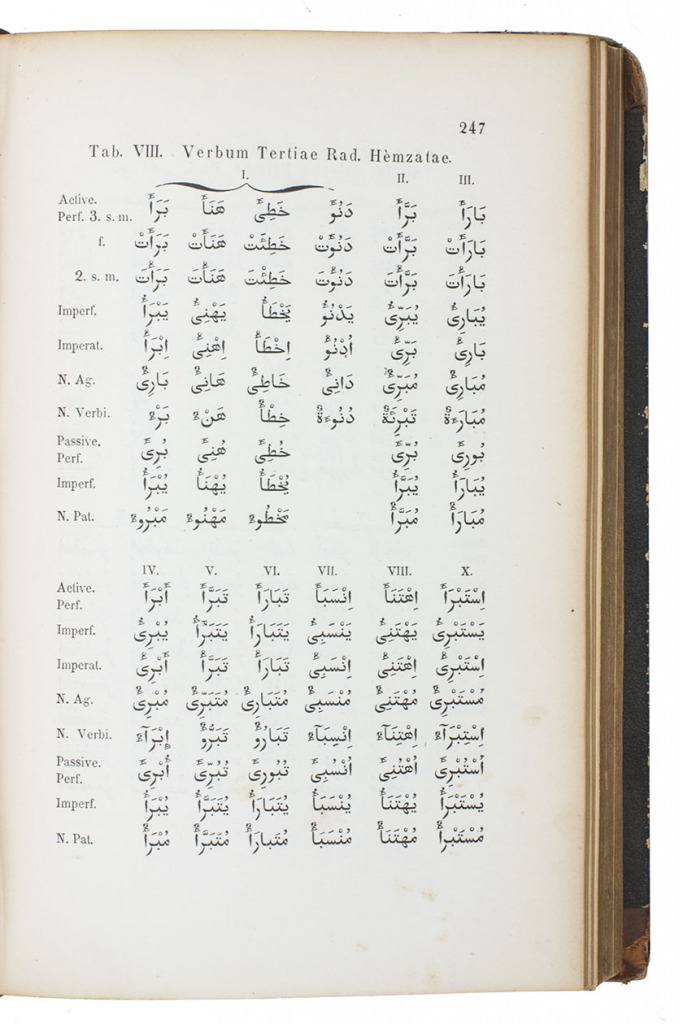 247
Tab. VIII. Verbum Tertiae Rad. Hèmzatae.
I. II. III.
Active.
Perf. 3. s. m. بَرَأَ هَنَأَ خَطِئَ دَنُؤَ بَرَّأَ بَارَأَ
f. بَرَأَتْ هَنَأَتْ خَطِئَتْ دَنُؤَتْ بَرَّأَتْ بَارَأَتْ
2. s. m. بَرَأْتَ هَنَأْتَ خَطِئْتَ دَنُؤْتَ بَرَّأْتَ بَارَأْتَ
Imperf. يَبْرَأُ يَهْنِئُ يَخْطَأُ يَدْنُؤُ يُبَرِّئُ يُبَارِئُ
Imperat. اِبْرَأْ اِهْنِئْ اِخْطَأْ اُدْنُؤْ بَرِّئْ بَارِئْ
N. Ag. بَارِئٌ هَانِئٌ خَاطِئٌ دَانِئٌ مُبَرِّئٌ مُبَارِئٌ
N. Verbi. بَرْءٌ هَنْءٌ خِطْأٌ دُنُوءَةٌ تَبْرِئَةٌ مُبَارَءَةٌ
Passive.
Perf. بُرِئَ هُنِئَ خُطِئَ بُرِّئَ بُورِئَ
Imperf. يُبْرَأُ يُهْنَأُ يُخْطَأُ يُبَرَّأُ يُبَارَأُ
N. Pat. مَبْرُوءٌ مَهْنُوءٌ مَخْطُوءٌ مُبَرَّأٌ مُبَارَأٌ
IV. V. VI. VII. VIII. X.
Active.
Perf. أَبْرَأَ تَبَرَّأَ تَبَارَأَ اِنْسَبَأَ اِهْتَنَأَ اِسْتَبْرَأَ
Imperf. يُبْرِئُ يَتَبَرَّأُ يَتَبَارَأُ يَنْسَبِئُ يَهْتَنِئُ يَسْتَبْرِئُ
Imperat. أَبْرِئْ تَبَرَّأْ تَبَارَأْ اِنْسَبِئْ اِهْتَنِئْ اِسْتَبْرِئْ
N. Ag. مُبْرِئٌ مُتَبَرِّئٌ مُتَبَارِئٌ مُنْسَبِئٌ مُهْتَنِئٌ مُسْتَبْرِئٌ
N. Verbi. إِبْرَآءٌ تَبَرُّؤٌ تَبَارُؤٌ اِنْسِبَآءٌ اِهْتِنَآءٌ اِسْتِبْرَآءٌ
Passive.
Perf. أُبْرِئَ تُبُرِّئَ تُبُورِئَ اُنْسُبِئَ اُهْتُنِئَ اُسْتُبْرِئَ
Imperf. يُبْرَأُ يُتَبَرَّأُ يُتَبَارَأُ يُنْسَبَأُ يُهْتَنَأُ يُسْتَبْرَأُ
N. Pat. مُبْرَأٌ مُتَبَرَّأٌ مُتَبَارَأٌ مُنْسَبَأٌ مُهْتَنَأٌ مُسْتَبْرَأٌ